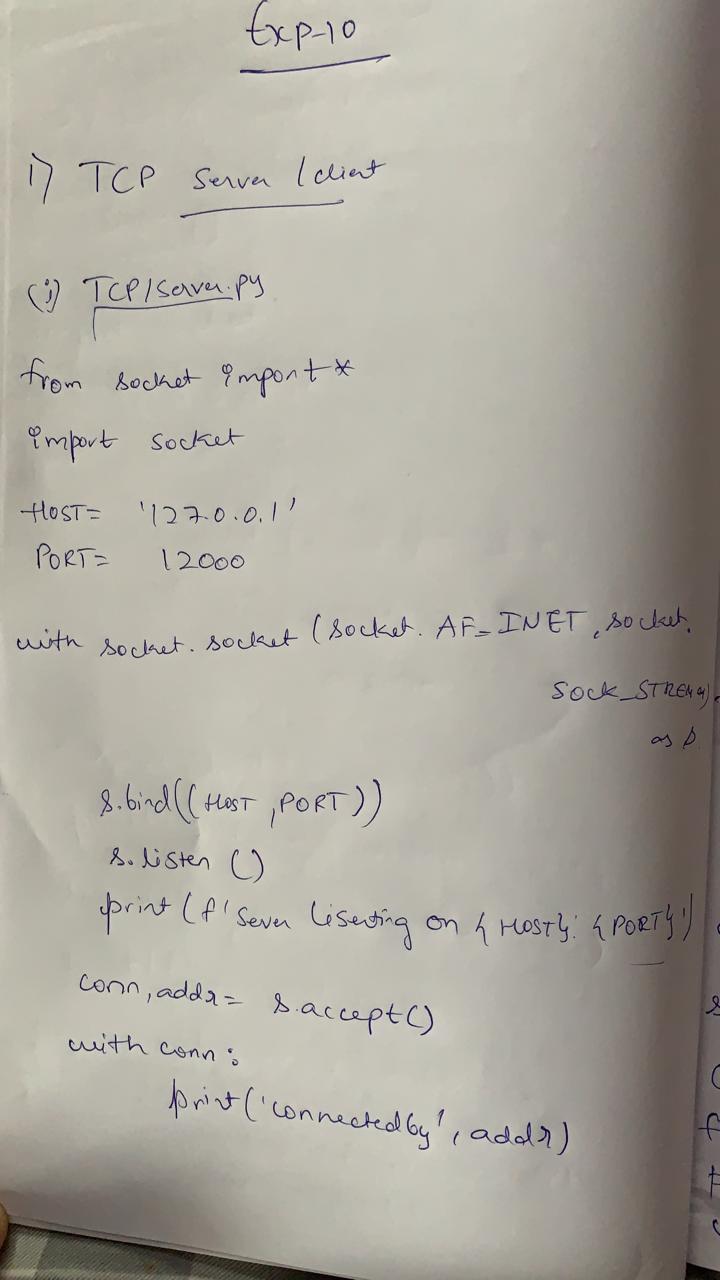 Exp-10
1) TCP Server / client
(i) TCP/Server.py
from socket import *
import socket
HOST= '127.0.0.1'
PORT= 12000
with socket. socket (socket. AF_INET, socket.
SOCK_STREM)
as s
s.bind((HOST, PORT))
s. listen ()
print (f' Sever liserting on {HOST}: {PORT}')
conn, addr= s.accept()
with conn:
print('connected by', addr)